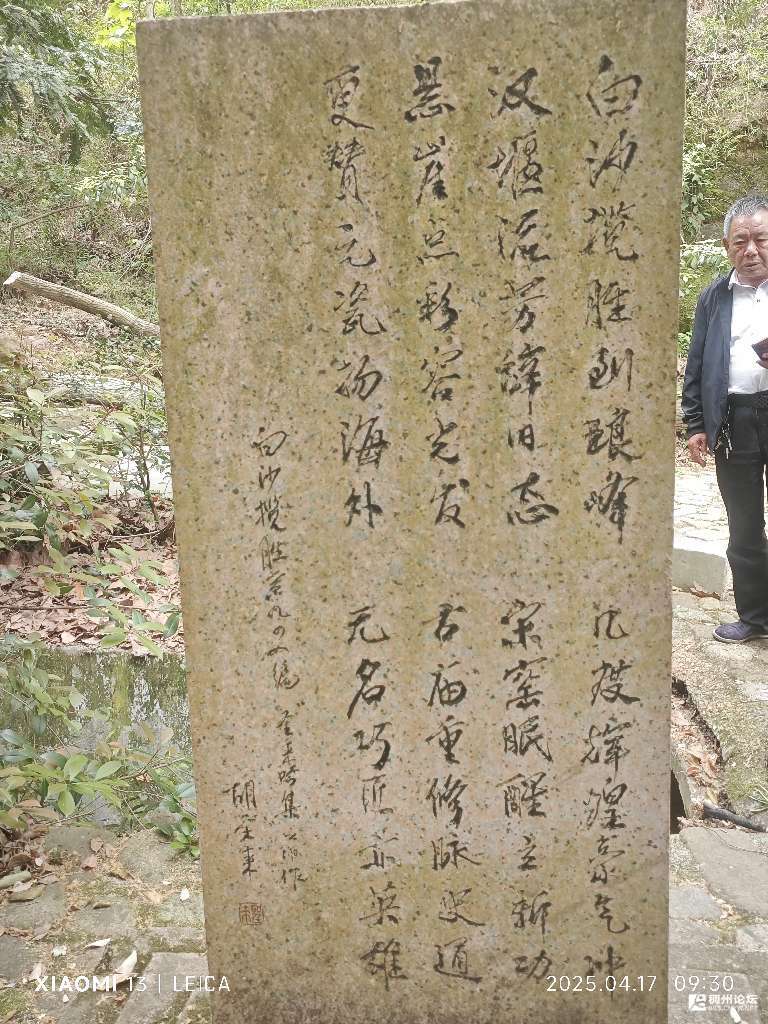 白沙揽胜到琅峰 几度辉煌豪气冲
汉堰流芳辞旧态 宋窑眠醒立新功
悬崖点彩容光发 古庙重修脉史通
更赞元瓷扬海外 无名巧匠亦英雄
白沙揽胜
诗集 作
胡 来
XIAOMI 13 | LEICA
2025.04.17 09:30
稠州论坛